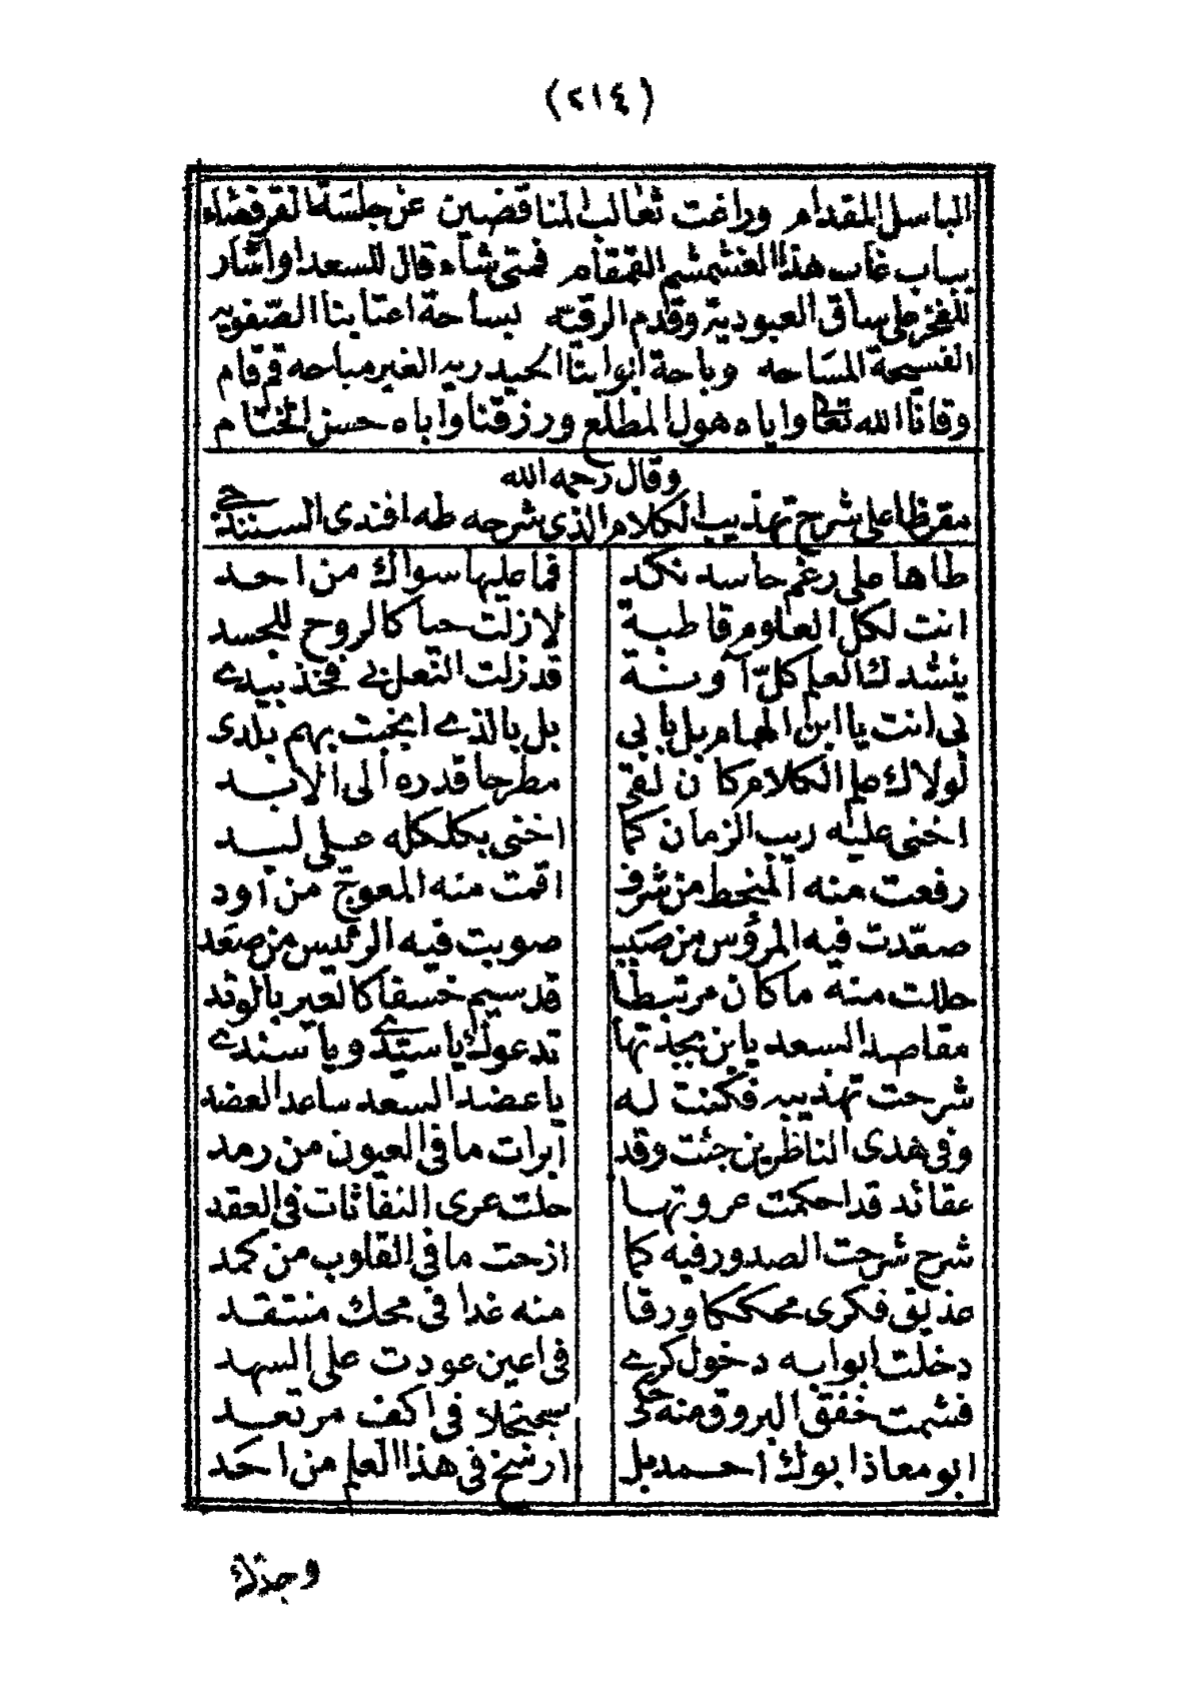 (٢١٤)
الباسل المقدام وراغت ثعالب المناقضين عن جلسة القرفصاء
بباب غاب هذا الغشمشم القمقام فمتى شاء قال للسعد اوأشار
للفخر على ساق العبودية وقدم الرقية بساحة اعتابنا الصفويه
الفسيحة المساحه وباحة ابوابنا الحيدريه الغير مباحه قم قام
وقانا الله تعالى واياه هول المطلع ورزقنا واياه حسن الختام
وقال رحمه الله
مقرظا على شرح تهذيب الكلام الذي شرحه طه افندى السنندجي
طاها على رغم حاسد نكد فما عليها سواك من احد
انت لكل العلوم قاطبة لازلت حيا كالروح للجسد
ينشدك العلم كل آونة قد زلت النعل بي فخذ بيدي
بي انت يا ابن الهمام بل بابي بل بالذي انجبت بهم بلدى
لولاك علم الكلام كان لقى مطرحا قدره الى الابد
اخنى عليه ريب الزمان كما اخنى بكلكله على لبد
رفعت منه المنحط من شرف اقمت منه المعوج من اود
صعدت فيه المرؤس من صبب صوبت فيه الرئيس من صعد
حللت منه ماكان مرتبطا قد سيم خسفا كالعير بالوتد
مقاصد السعد يابن بجدتها تدعوك ياسيدي وياسندي
شرحت تهذيبه فكنت له ياعضد السعد ساعد العضد
وفى هدى الناظرين جئت وقد ابرات مافى العيون من رمد
عقائد قد احكمت عروتها حلت عرى النفاثات فى العقد
شرح شرحت الصدور فيه كما ازحت مافى القلوب من كمد
عذيق فكرى محككا ورقا منه غدا فى محك منتقد
دخلت ابوابه دخول كرى فى اعين عودت على السهد
فشمت خفق البروق منه حكى سجنجلا فى اكف مرتعد
ابو معاذ ابوك احمد بل ارسخ فى هذا العلم من احد
وجدك